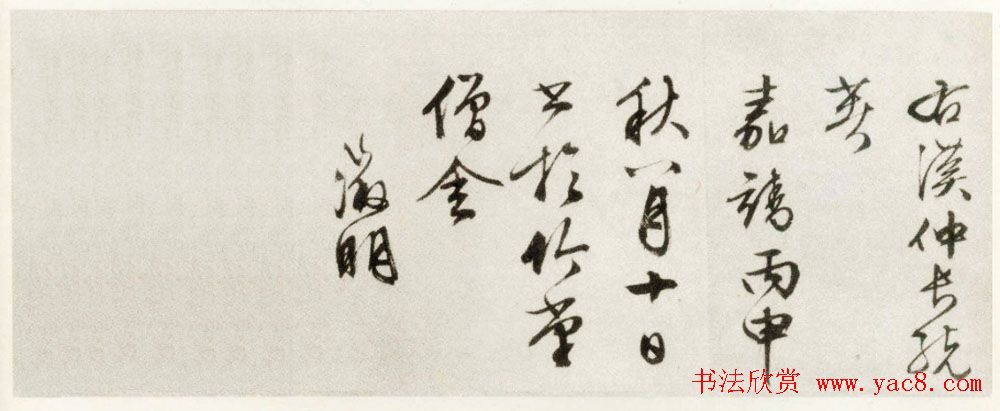 右漢仲長統
嘉靖丙申
秋八月十日
書於竹堂
僧舍
徵明
书法欣赏 www.yac8.com